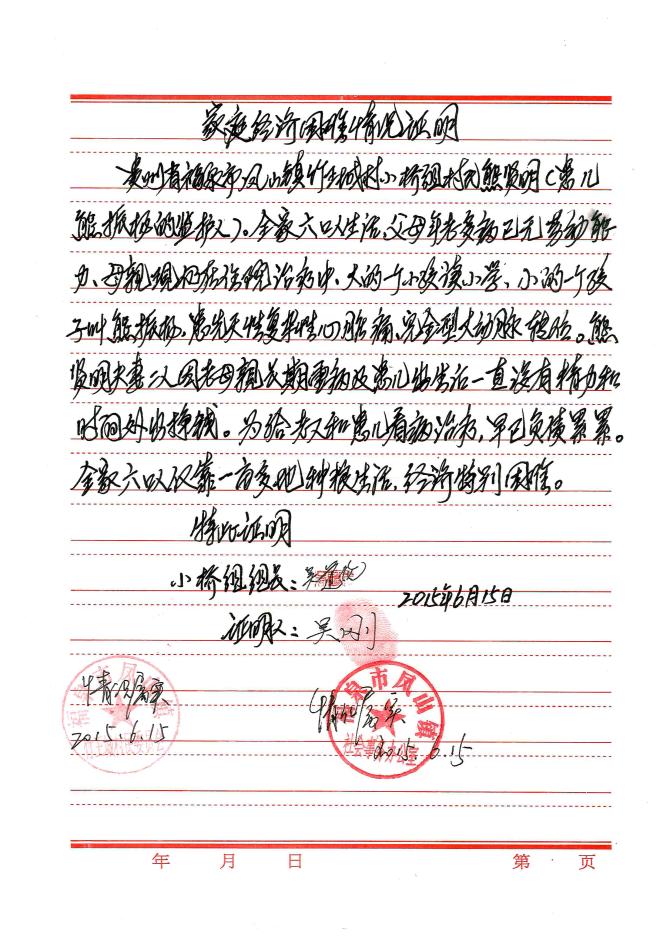 家庭经济困难情况证明
贵州省福泉市凤山镇竹王城村小桥组村民熊贤明（患儿
熊振杨的监护人）。全家六口人生活，父母年老多病已无劳动能
力、母亲现仍在住院治病中，大的一个小孩读小学，小的一个孩
子叫熊振杨，患先天性复杂性心脏病，完全型大动脉转位。熊
贤明夫妻二人因老母亲长期重病及患儿出生后一直没有精力和
时间外出挣钱。为给老人和患儿看病治病，早已负债累累。
全家六口人仅靠一亩多地种粮生活，经济特别困难。
特此证明
小桥组组长：吴
2015年6月15日
证明人：吴刚
情况属实
2015.6.15
情况属实
2015.6.15
泉市凤山镇
年 月 日 第 页